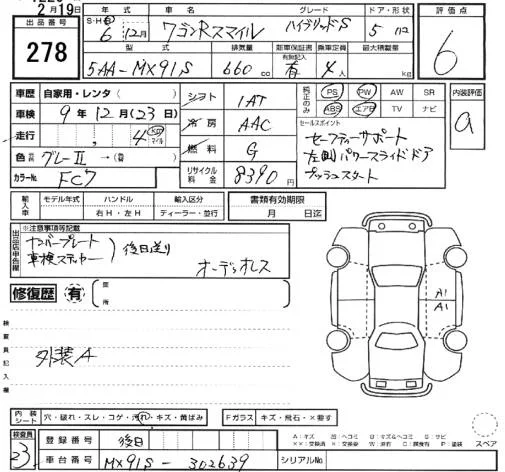 2月19日
出品番号 278
年式 S・H・R 6年 12月 車名 ワゴンRスマイル グレード ハイブリッドS ドア・形状 5 ハコ
型式 5AA-MX91S 排気量 660cc 新車保証書 有無記入 有 乗車定員 4人 最大積載量 kg
評価点 6
車歴 自家用・レンタ( )
車検 9年12月(23日)
走行 4 Km マイル
色 グレーⅡ →(替 )
カラーNo. FC7
シフト 1AT
冷房 AAC
燃料 G
リサイクル料金 8390円
純正のみ PS PW AW SR
ABS エアB TV ナビ
セールスポイント
セーフティーサポート
左側パワースライドドア
プッシュスタート
内装評価 a
輸入車 モデル年式 ハンドル 輸入区分
年 右H・左H ディーラー・並行
書類有効期限
月 日迄
出品店申告欄 ※注意事項等記載
ナンバープレート
車検ステッカー ) 後日送り
オーディオレス
修復歴 有 箇所
検査員記入欄
外装A
A1
A1
内装シート 穴・破れ・スレ・コゲ・汚れ・キズ・黄ばみ
Fガラス キズ・飛石・×要す
検査員 23
登録番号 後日
車台番号 MX91S-302639
シリアルNo.
A:キズ
スペア